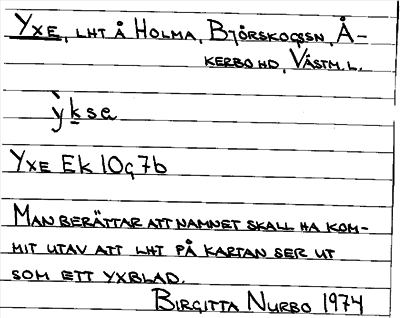 YXE, LHT Å HOLMA, BJÖRSKOGSSN, Å-
KERBO HD, VÄSTM.L.
ỳkse
YXE Ek 10g7b
MAN BERÄTTAR ATT NAMNET SKALL HA KOM-
MIT UTAV ATT LHT PÅ KARTAN SER UT
SOM ETT YXBLAD.
BIRGITTA NURBO 1974